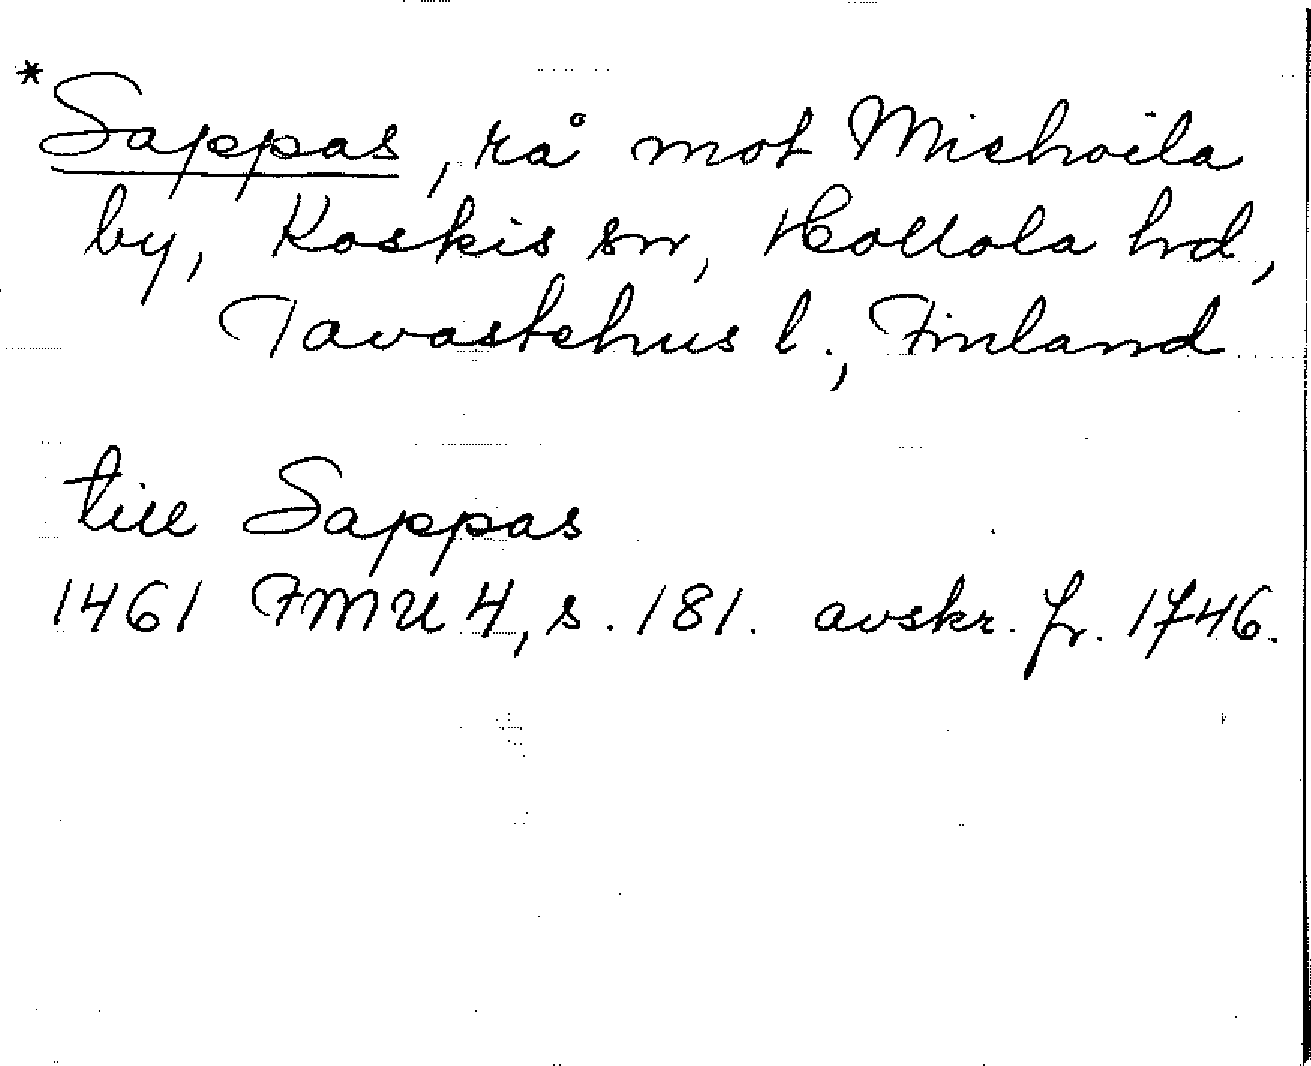 *Sappas, rå mot Michoila
by, Koskis sn, Hollola hrd,
Tavastehus l., Finland
till Sappas
1461 FMU 4, s. 181. avskr. fr. 1746.